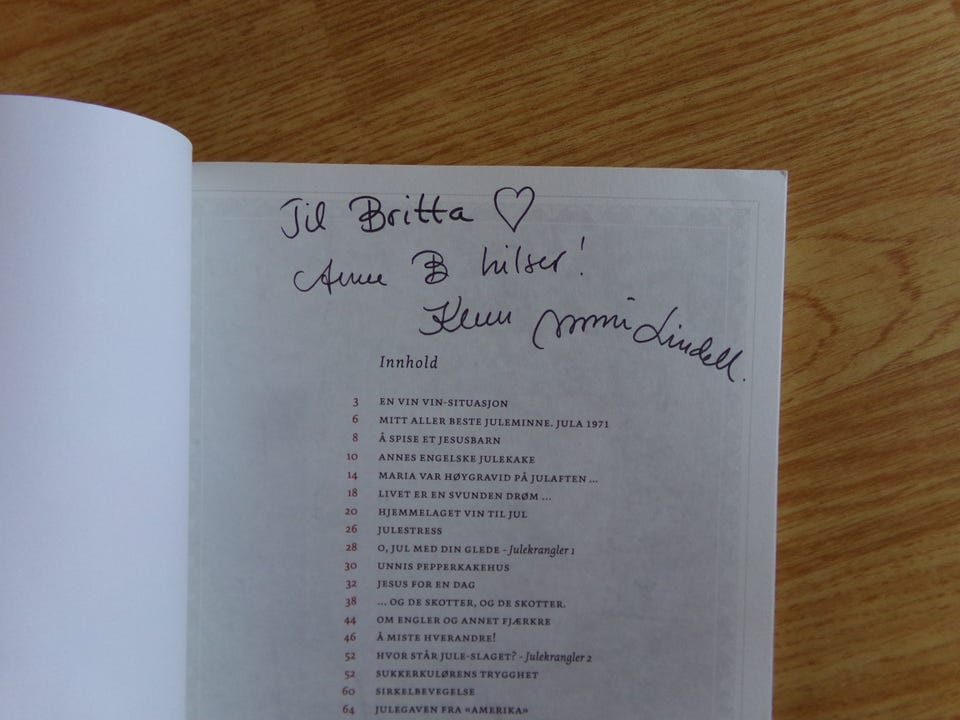 Til Britta ♡
Anne B hilser!
Klem Unni Lindell.
Innhold
3 EN VIN VIN-SITUASJON
6 MITT ALLER BESTE JULEMINNE. JULA 1971
8 Å SPISE ET JESUSBARN
10 ANNES ENGELSKE JULEKAKE
14 MARIA VAR HØYGRAVID PÅ JULAFTEN ...
18 LIVET ER EN SVUNDEN DRØM ...
20 HJEMMELAGET VIN TIL JUL
26 JULESTRESS
28 O, JUL MED DIN GLEDE - Julekrangler 1
30 UNNIS PEPPERKAKEHUS
32 JESUS FOR EN DAG
38 ... OG DE SKOTTER, OG DE SKOTTER.
44 OM ENGLER OG ANNET FJÆRKRE
46 Å MISTE HVERANDRE!
52 HVOR STÅR JULE-SLAGET? - Julekrangler 2
52 SUKKERKULØRENS TRYGGHET
60 SIRKELBEVEGELSE
64 JULEGAVEN FRA «AMERIKA»